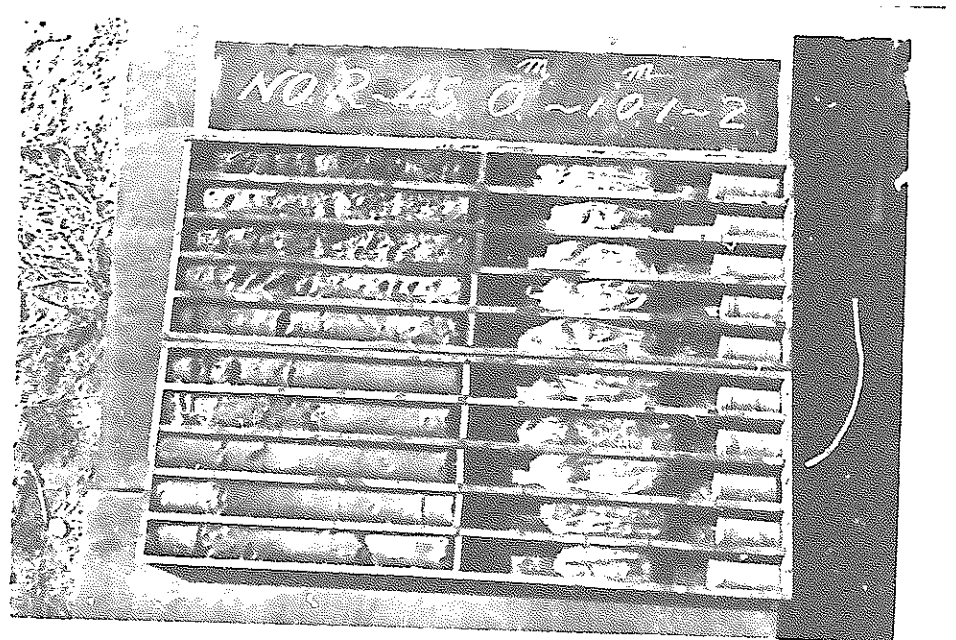 NO R-45 0m~10m 1~2